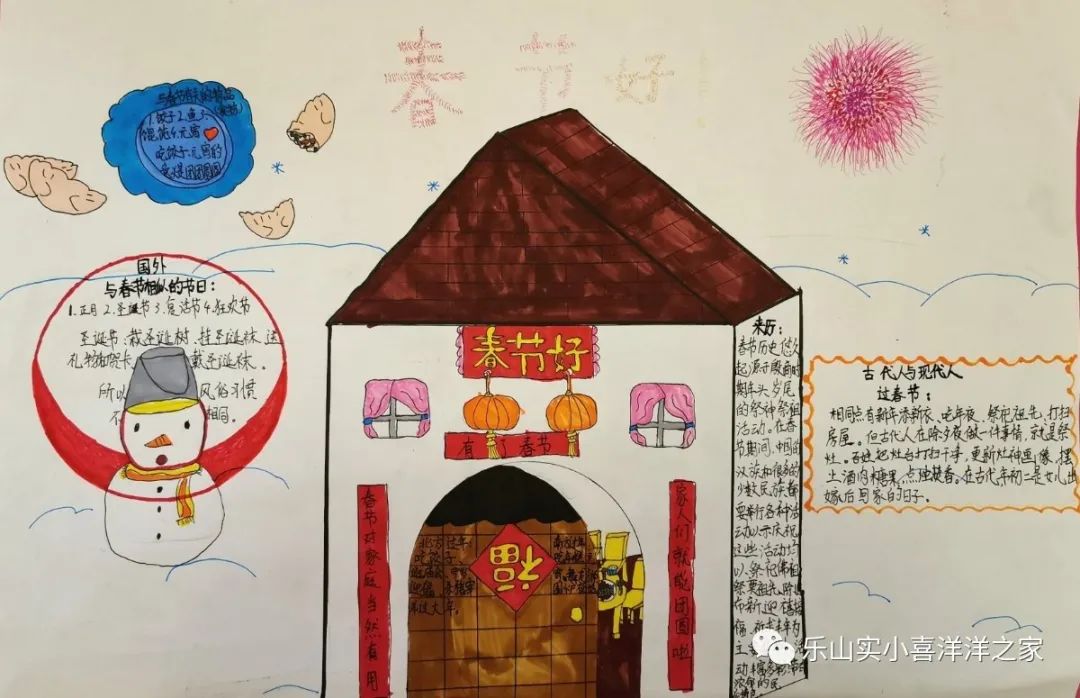 春节好
与春节有关的物品
1.饺子 2.鱼 3.
馄饨 4.元宵
吃饺子、元宵的
国外
与春节相似的节日：
1.正月 2.圣诞节 3.复活节 4.狂欢节
圣诞节：栽圣诞树、挂圣诞袜、送
礼物和贺卡 戴圣诞袜。
所以 风俗习惯
不 相同。
春节好
有了春节
春节对家庭当然有用
家人们就能团圆啦
福
北方过年：
吃饺子、
来历：
春节历史悠久
起源于殷商时
期年头岁尾
的祭神祭祖
活动。在春
节期间，中国的
汉族和很多的
少数民族都
要举行各种活
动以示庆祝
这些活动均
以祭祀佛祖
古代人与现代人
过春节：
相同点有新年添新衣、吃年夜、祭祀祖先、打扫
房屋。但古代人在除夕夜做一件事情，就是祭
灶。百姓把灶台打扫干净，更新灶神画像，摆
上酒肉糖果，点烛凝香。在古代年初二是女儿出
嫁后回家的日子。
乐山实小喜洋洋之家